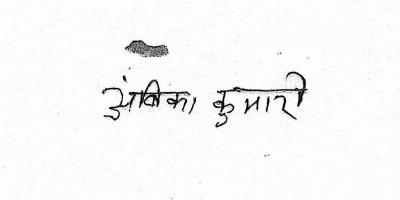 अंबिका कुमारी